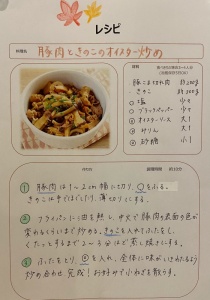 レシピ
料理名
豚肉ときのこのオイスター炒め
材料
豚こま切れ肉 約200g
きのこ 約200g
○塩 少々
○ブラックペッパー 少々
◎オイスターソース 大1
◎みりん 大1
◎砂糖 小1
作り方
調理時間 約10分
① 豚肉は1〜2cm幅に切り、○をふる。
きのこは手でほぐしたり、薄切りにする。
② フライパンに油を熱し、中火で豚肉の表面の色が
変わるくらいまで炒める。きのこを入れてふたをし、
くたっとするまで2〜3分ほど蒸し焼きにする。
③ ふたをとり、◎を入れ、全体に味がしみわたるよう
炒め合わせ完成！お好みで小ねぎを散らす。